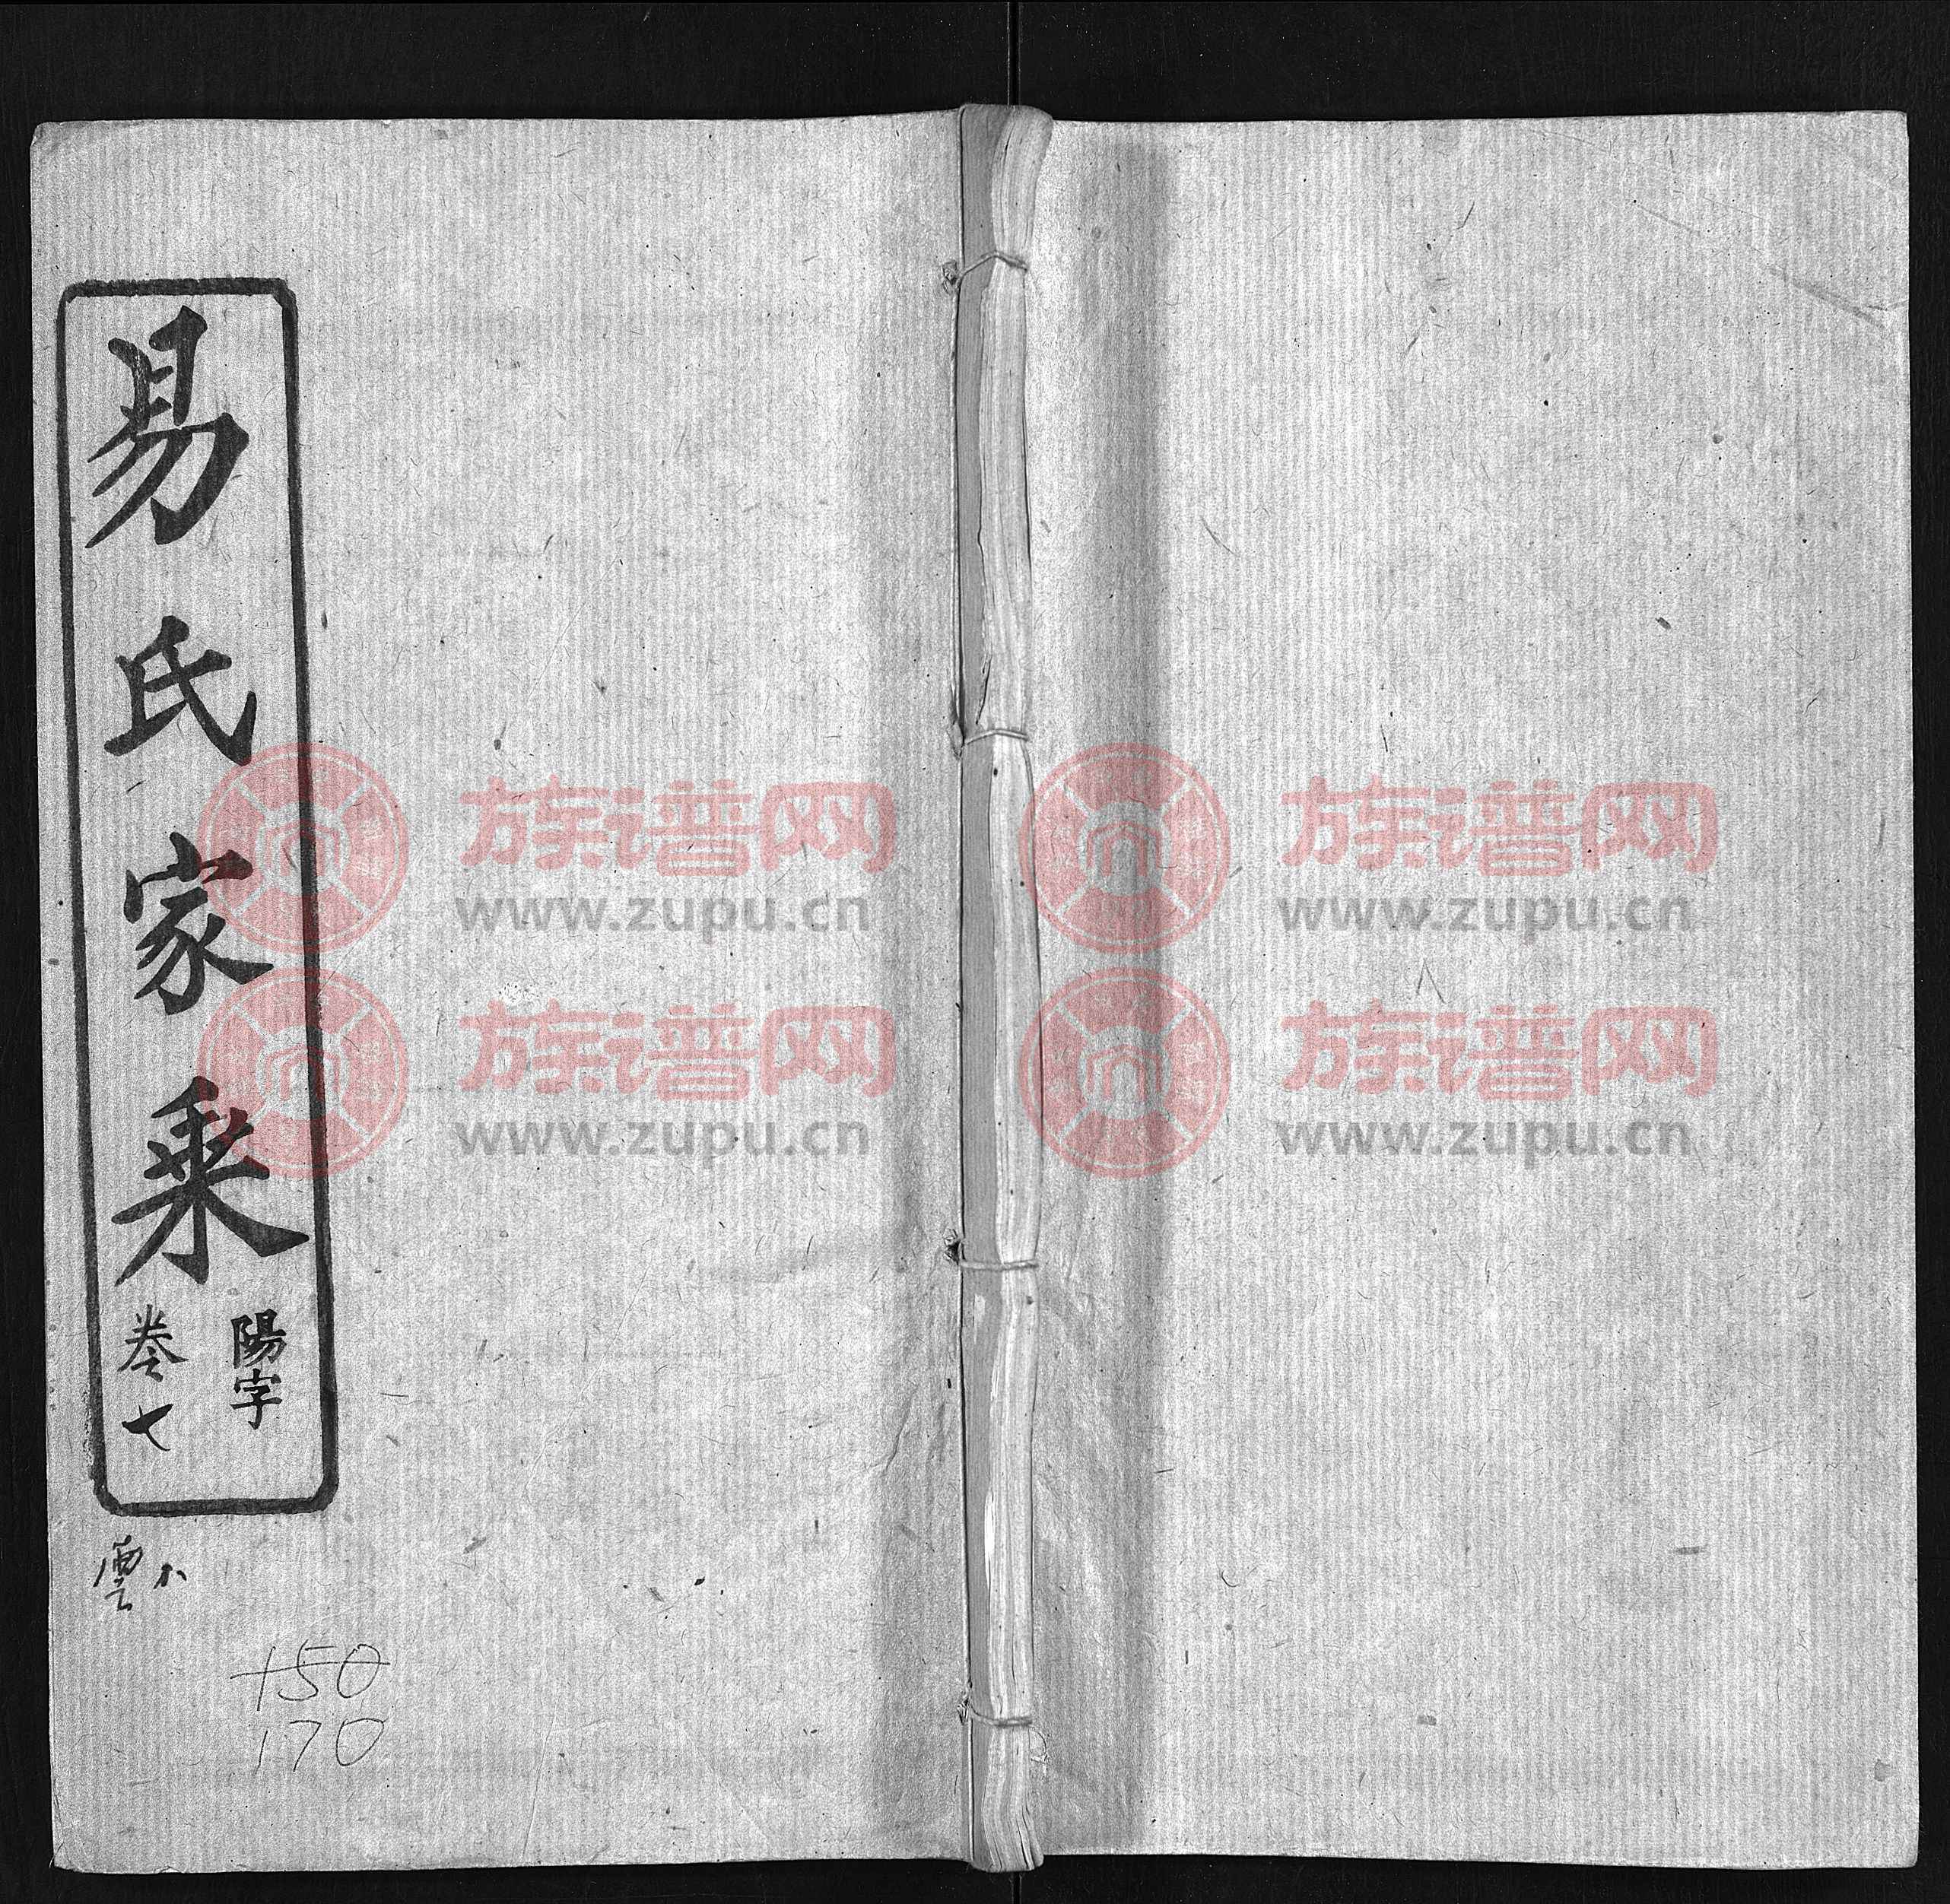 易氏家乘
陽字
卷七
雲
150
170
族谱网
www.zupu.cn
族谱网
www.zupu.cn
族谱网
www.zupu.cn
族谱网
www.zupu.cn